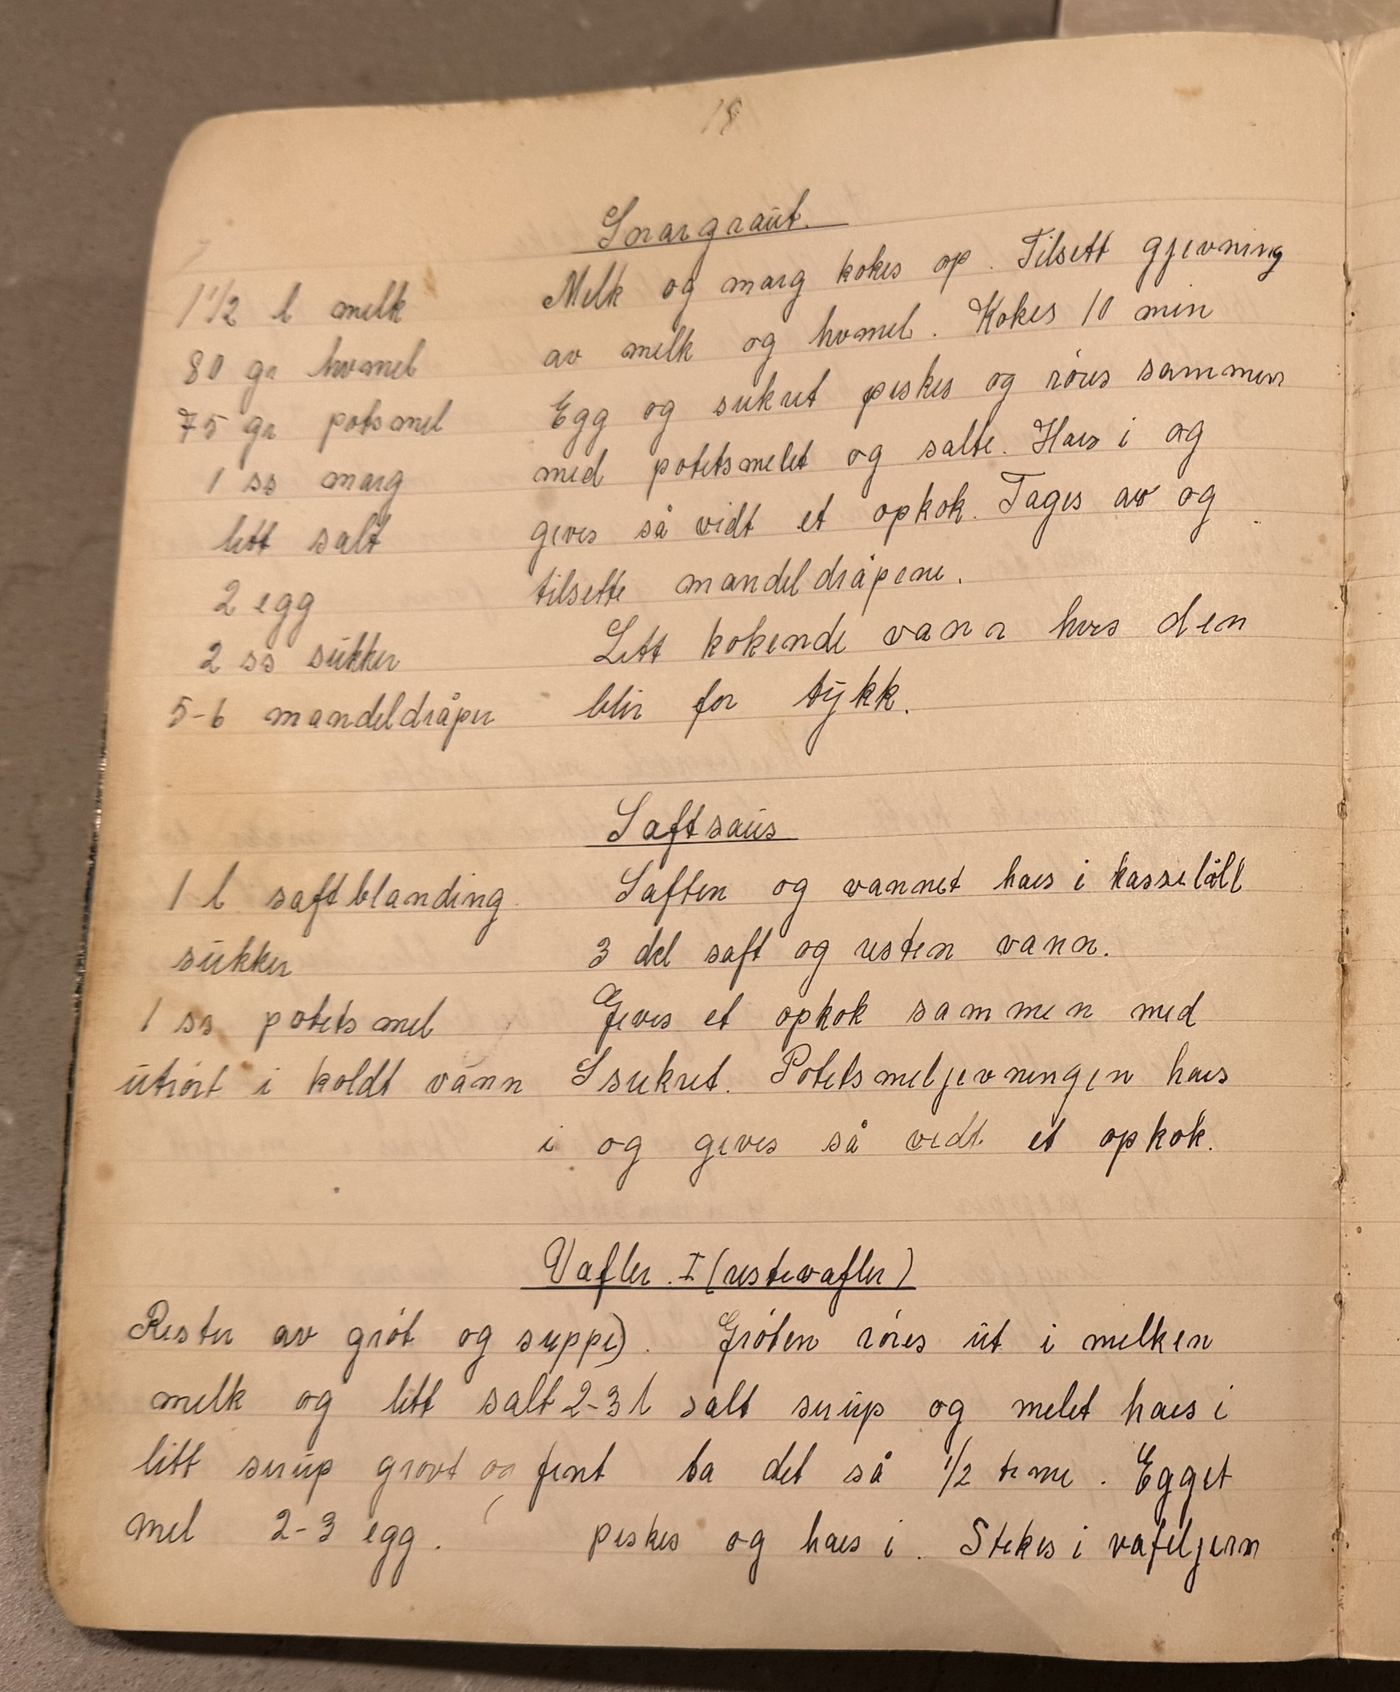 18
Snargraut.
1 1/2 l melk
80 gr hvmel
75 gr potsmel
1 ss marg
litt salt
2 egg
2 ss sukker
5-6 mandeldråper
Melk og marg kokes op. Tilsett gjevning
av melk og hvmel. Kokes 10 min
Egg og sukret piskes og røres sammen
med potetsmelet og salte. Haes i og
geves så vidt et opkok. Tages av og
tilsette mandeldråpene.
Litt kokende vann hvis den
blir for tykk.
Saftsaus
1 l saftblanding
sukker
1 ss potetsmel
utrørt i koldt vann
Saften og vannet haes i
3 del saft og resten vann.
Geves et opkok sammen med
sukret. Potetsmeljevningen haes
i og geves så vidt et opkok.
Vafler. I (restevafler)
Rester av grøt og suppe).
melk og litt salt 2-3 l
litt sirup grovt og fint
mel 2-3 egg.
Grøten røres ut i melken
salt sirup og melet haes i
la det så 1/2 time. Egget
piskes og haes i. Stekes i vafeljern